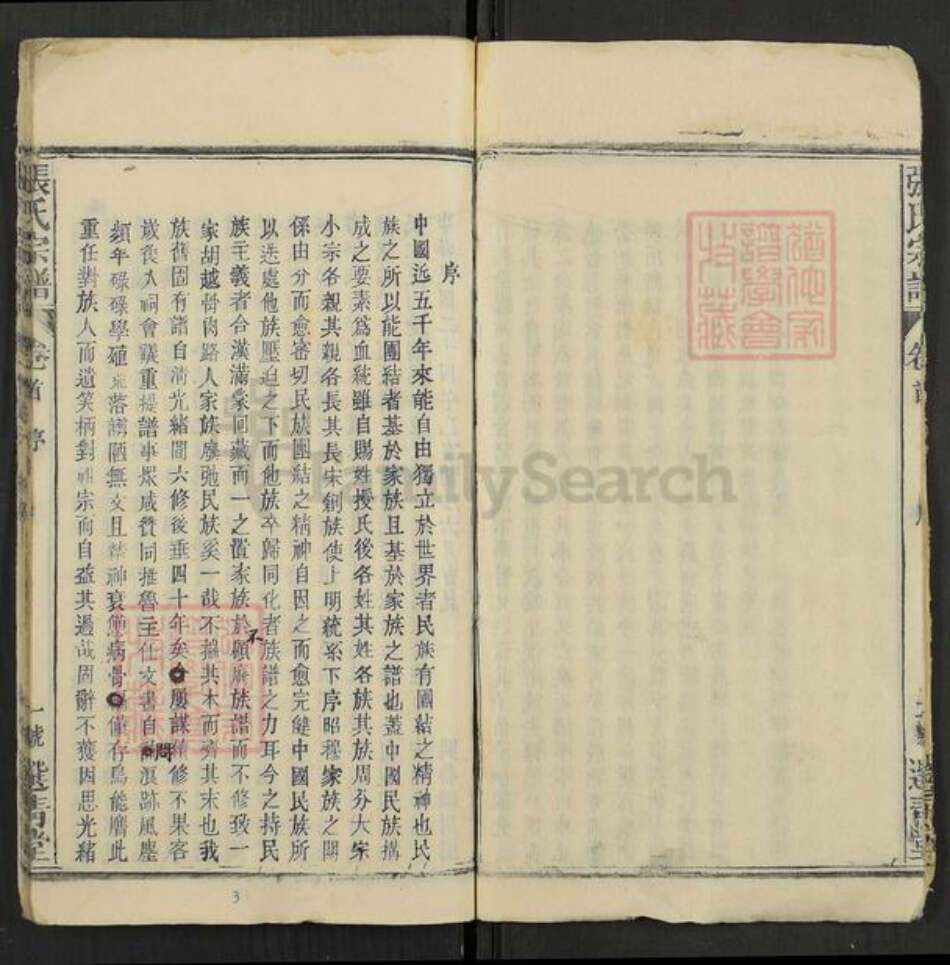 序
中國近五千年來能自由獨立於世界者民族有團結之精神也民
族之所以能團結者基於家族且基於家族之譜也蓋中國民族搆
成之要素爲血統雖自賜姓授氏後各姓其姓各族其族周分大宗
小宗各親其親各長其長宋創族使上明統系下序昭穆家族之關
係由分而愈審切民族團結之精神自因之而愈完健中國民族所
以迭處他族壓迫之下而他族卒歸同化者族譜之力耳今之持民
族主義者合漢滿蒙回藏而一之置家族於不顧廢族譜而不修致一
家胡越骨肉路人家族廢弛民族奚一哉不揣其本而齊其末也我
族舊固有譜自淸光緒間六修後垂四十年矣屢謀續修不果客
歲後人祠會議重提譜事眾咸贊同推魯主仕文書自問浪跡風塵
頻年碌碌學殖荒落譾陋無文且精神衰憊病骨僅存烏能膺此
重任對族人而遺笑柄對祖宗而自益其過哉固辭不獲因思光緒
張氏宗譜
卷首
序
一號
選青堂
張氏宗譜
卷首
選青堂
猶他家
譜學會
收藏
FamilySearch
3